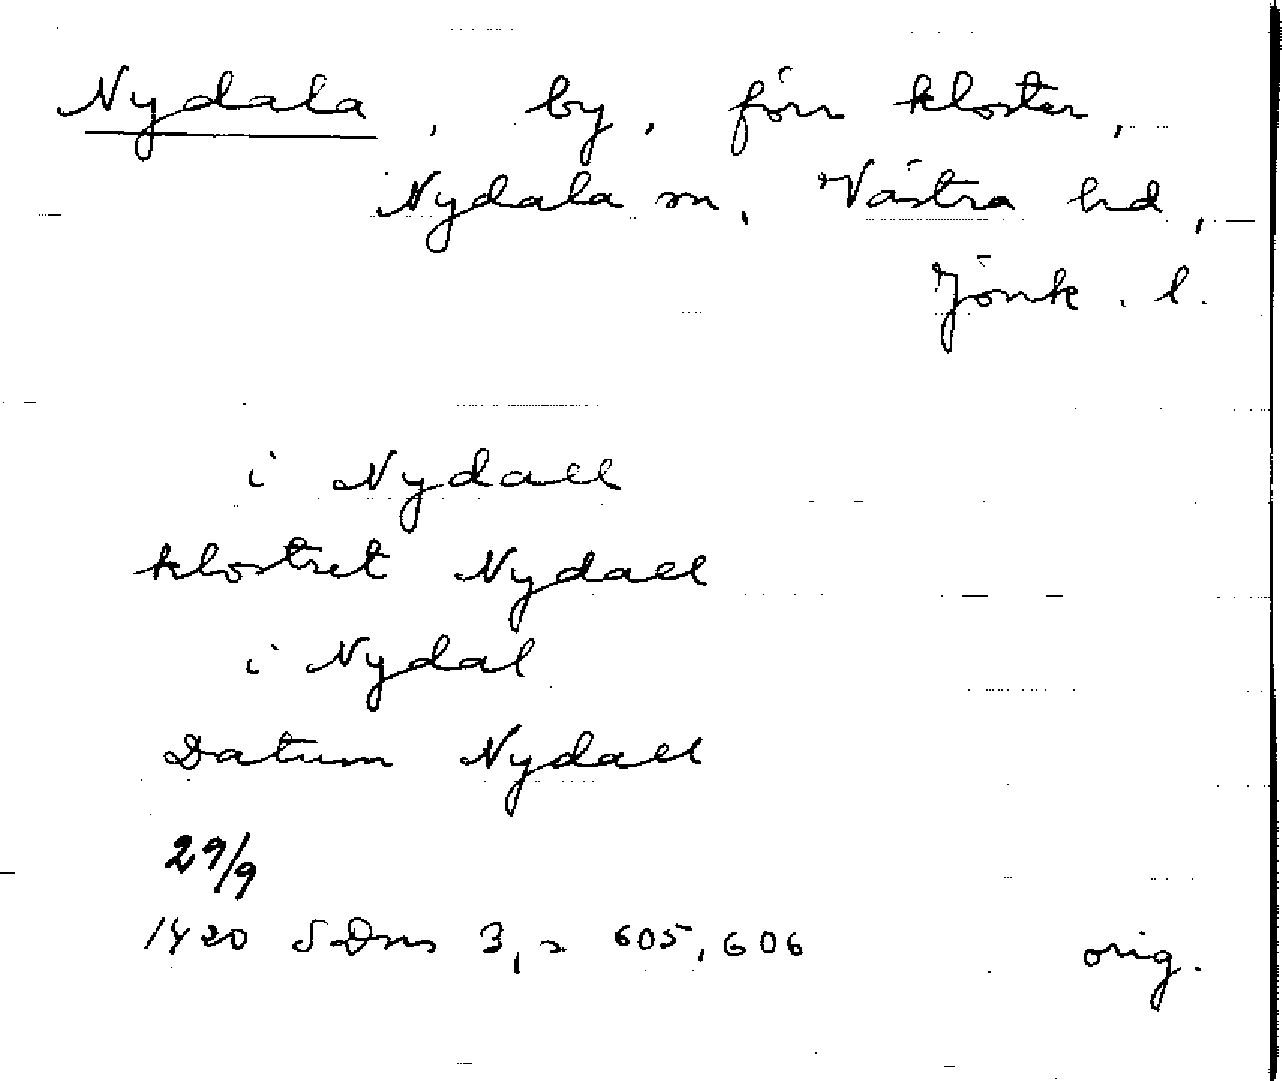 Nydala, by, förr kloster,
Nydala sn, Västra hd,
Jönk. l.
i Nydall
klostret Nydall
i Nydal
Datum Nydall
29/9
1420 SDns 3, s 605, 606 orig.